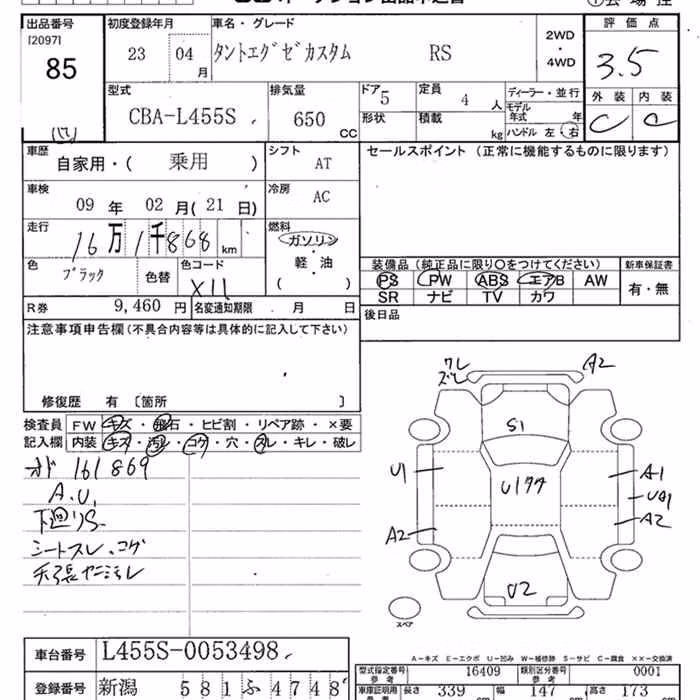 出品番号
[2097]
85
初度登録年月
23 04 月
車名・グレード
タントエグゼカスタム RS
2WD
・
4WD
評価点
3.5
外装 内装
C C
型式
CBA-L455S
排気量
650 CC
ドア 5
定員 4 人
形状
積載 kg
ディーラー・並行
モデル年式 年
ハンドル 左 右
車歴
自家用・( 乗用 )
シフト
AT
車検
09 年 02 月 ( 21 日)
冷房
AC
走行
16万1千868 km
燃料
ガソリン
軽・油
( )
色
ブラック
色替
色コード
X11
R券 9,460 円
名変通知期限 月 日
セールスポイント (正常に機能するものに限ります)
装備品 (純正品に限り○をつけてください)
新車保証書
PS PW ABS エアB AW
SR ナビ TV カワ
有・無
後日品
注意事項申告欄(不具合内容等は具体的に記入して下さい)
修復歴 有 〔箇所 〕
検査員記入欄
FW キズ・飛石・ヒビ割・リペア跡・×要
内装 キズ・汚レ・コゲ・穴・スレ・キレ・破レ
オド 161869
A.U.
下廻りS
シートスレ、コゲ
天張ヤニ汚レ
ワレ
ズレ
A2
S1
U1
Uワケ
A1
UA1
A2
A2
U2
スペア
A-キズ E-エクボ U-凹み W-補修跡 S-サビ C-腐食 ××-交換済
車台番号 L455S-0053498
登録番号 新潟 581 ふ 4748
型式指定番号 参考 16409
類別区分番号 参考 0001
車庫証明用 長さ 339 cm 幅 147 cm 高さ 173 cm